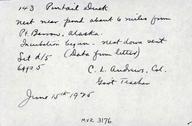 143 Pintail Duck
nest near pond about 6 miles from
Pt. Barrow, Alaska.
Incubation begun. nest down sent
Set d/5 (Data from letter)
eggs 5
C. L. Andrews, Col.
Govt Teacher
June 15th 1925
MVZ 3176